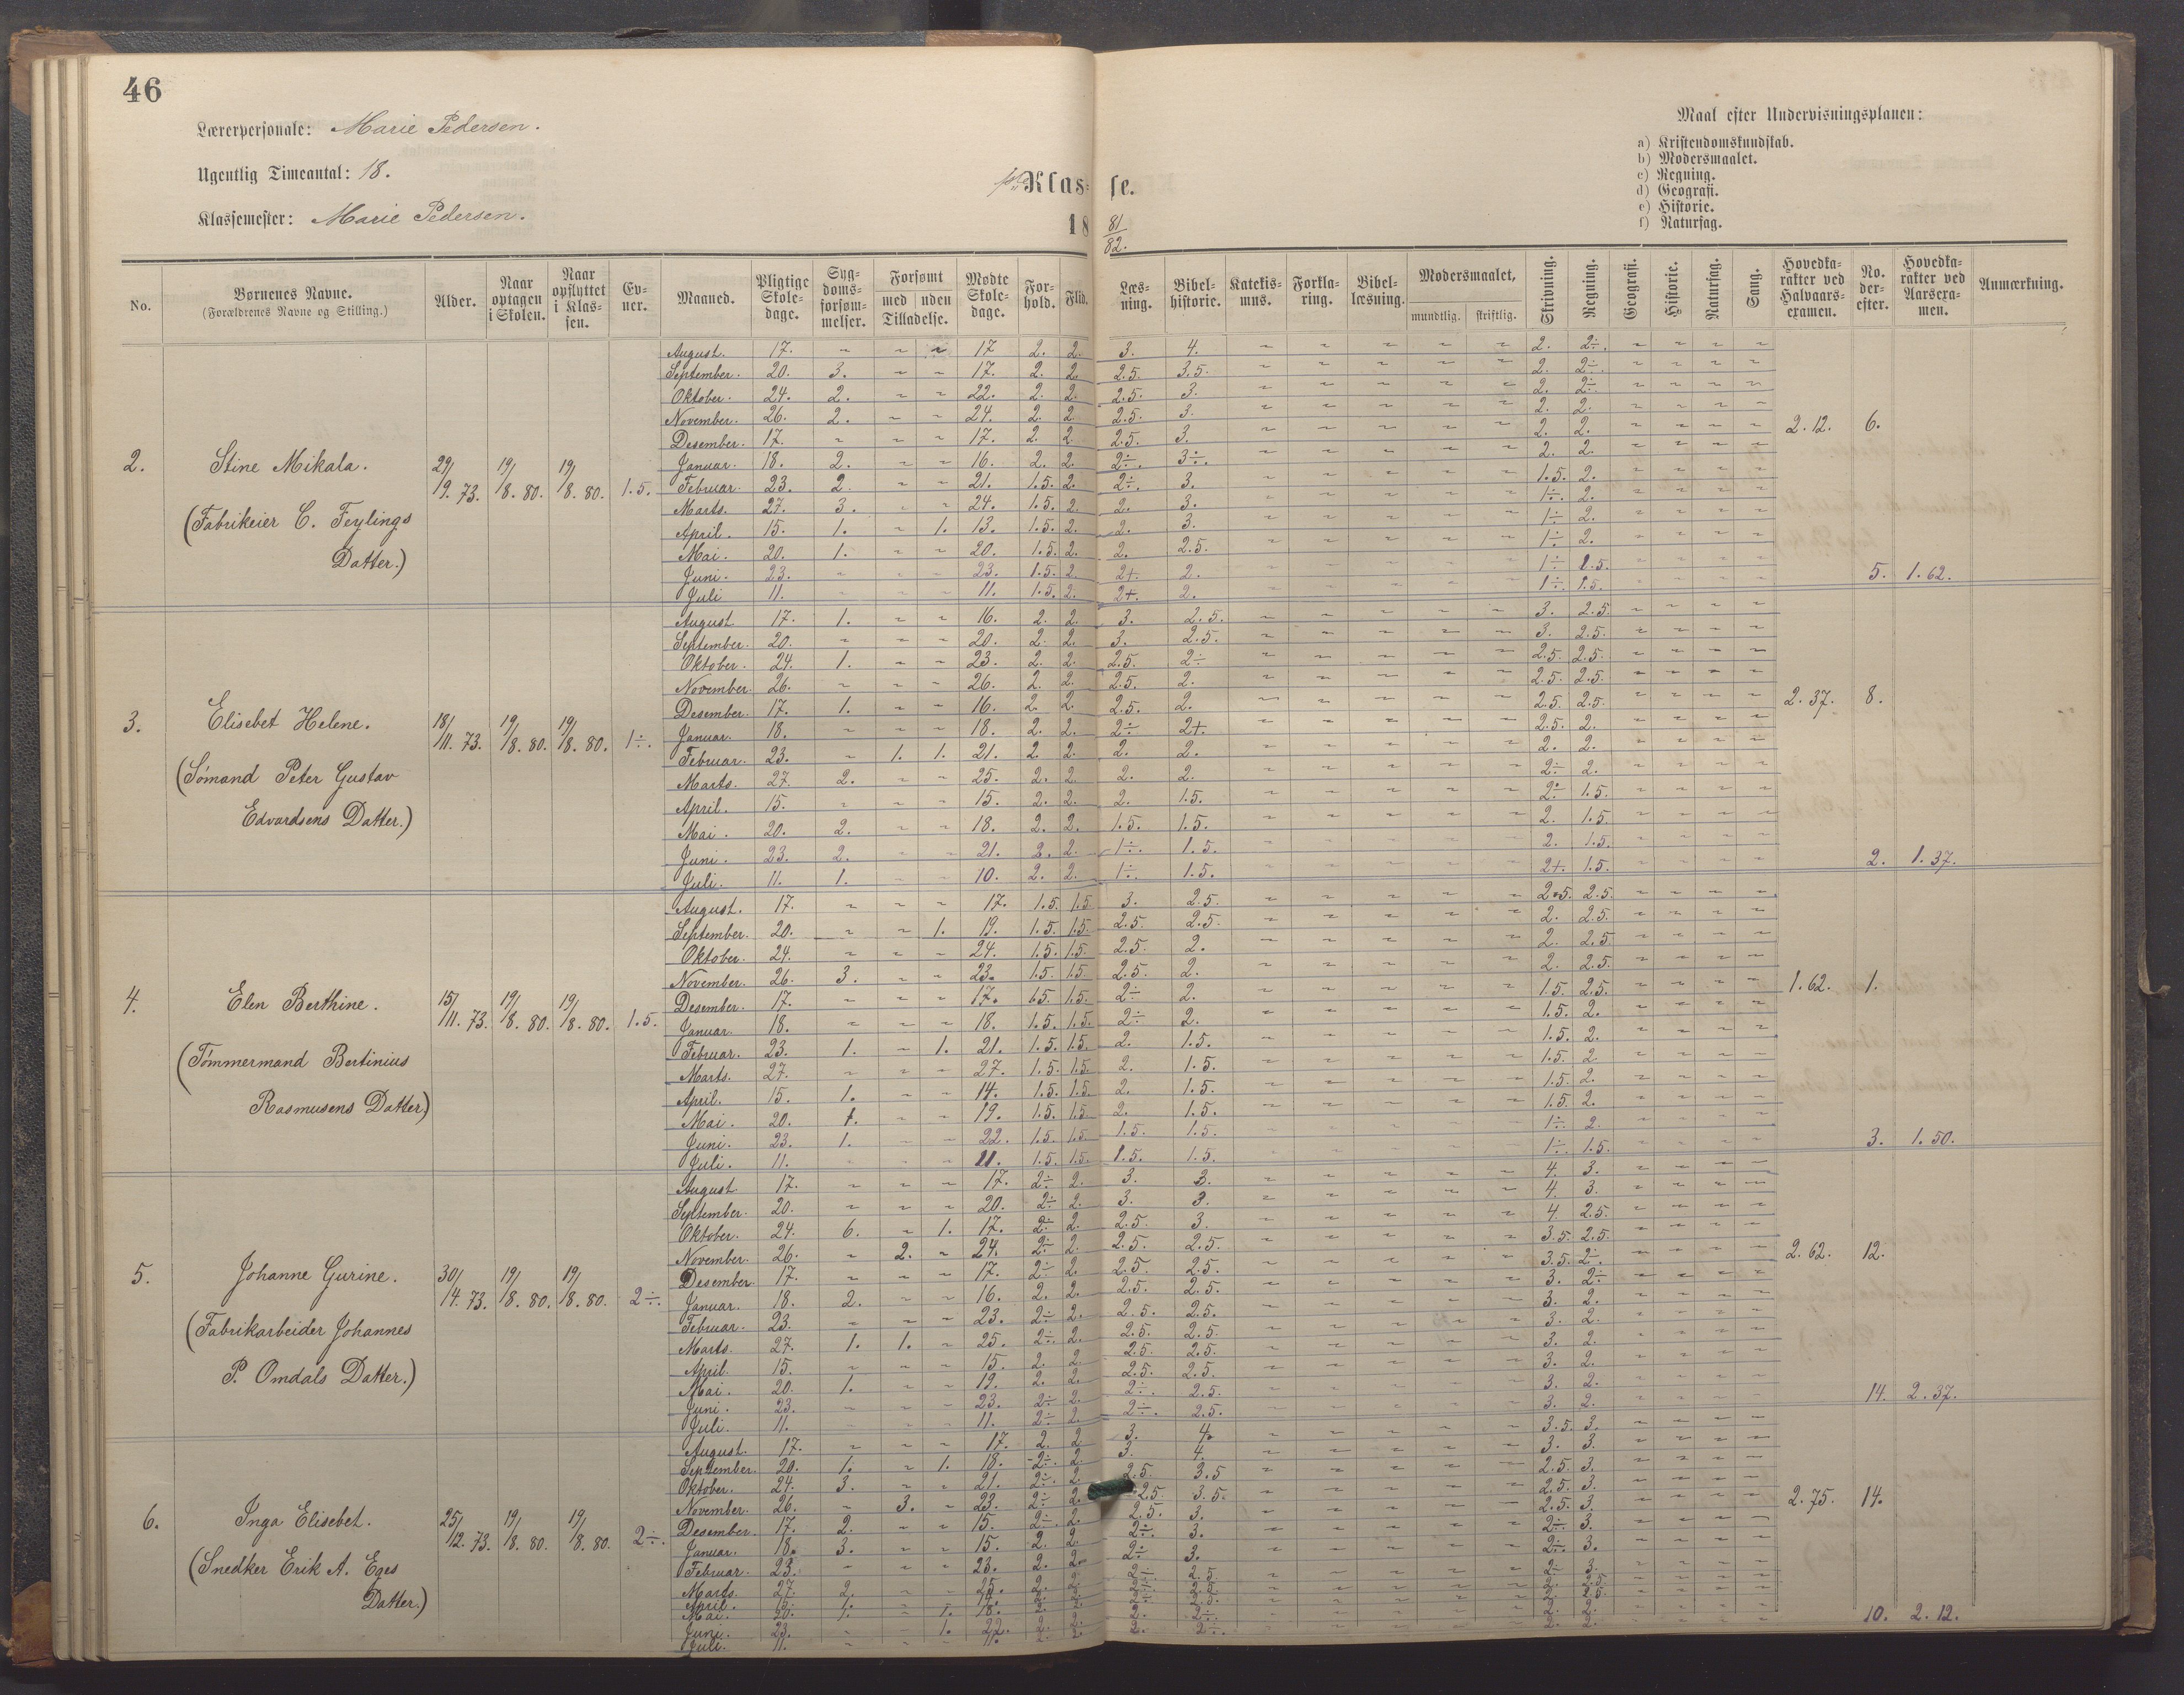 46
Lærerpersonale: Marie Pedersen.
Ugentlig Timeantal: 18.
Klassemester: Marie Pedersen.
1ste Klasse.
18 81/82.
Maal efter Undervisningsplanen:
a) Kristendomskundskab.
b) Modersmaalet.
c) Regning.
d) Geografi.
e) Historie.
f) Naturfag.
No. | Børnenes Navne. (Forældrenes Navne og Stilling.) | Alder. | Naar optagen i Skolen. | Naar opflyttet i Klassen. | Evner. | Maaned. | Pligtige Skoledage. | Sygdomsforsømmelser. | Forsømt med / uden Tilladelse. | Mødte Skoledage. | Forhold. | Flid. | Læsning. | Bibelhistorie. | Katekismus. | Forklaring. | Bibellæsning. | Modersmaalet, mundtlig. | skriftlig. | Skrivning. | Regning. | Geografi. | Historie. | Naturfag. | Sang. | Hovedkarakter ved Halvaarsexamen. | No. derefter. | Hovedkarakter ved Aarsexamen. | Anmærkning.
2. Stine Mikala. (Fabrikeier C. Feylings Datter.) 29/9. 73. 19/8. 80. 19/8. 80. 1.5.
August. 17. ~ ~ ~ 17 2. 2. 3. 4. ~ ~ ~ ~ ~ 2. 2÷. ~ ~ ~ ~
September. 20. 3. ~ ~ 17. 2. 2. 2.5. 3.5. ~ ~ ~ ~ ~ 2. 2÷. ~ ~ ~ ~
Oktober. 24. 2. ~ ~ 22. 2. 2. 2.5. 3. ~ ~ ~ ~ ~ 2. 2÷ ~ ~ ~ ~
November. 26. 2. ~ ~ 24. 2. 2. 2.5. 3. ~ ~ ~ ~ ~ 2. 2. ~ ~ ~ ~
Desember. 17. ~ ~ ~ 17. 2. 2. 2.5. 3. ~ ~ ~ ~ ~ 2. 2. ~ ~ ~ ~ 2.12. 6.
Januar. 18. 2. ~ ~ 16. 2. 2. 2÷. 3÷. ~ ~ ~ ~ ~ 2. 2. ~ ~ ~ ~
Februar. 23. 2. ~ ~ 21. 1.5. 2. 2÷. 3. ~ ~ ~ ~ ~ 1.5. 2. ~ ~ ~ ~
Marts. 27. 3. ~ ~ 24. 1.5. 2. 2. 3. ~ ~ ~ ~ ~ 1÷. 2. ~ ~ ~ ~
April. 15. 1. ~ 1. 13. 1.5. 2. 2. 3. ~ ~ ~ ~ ~ 1÷ 2. ~ ~ ~ ~
Mai. 20. 1. ~ ~ 20. 1.5. 2. 2. 2.5. ~ ~ ~ ~ ~ 1÷ 2. ~ ~ ~ ~
Juni. 23. ~ ~ ~ 23. 1.5. 2. 2+. 2. ~ ~ ~ ~ ~ 1÷ 1.5. ~ ~ ~ ~ 5. 1.62.
Juli 11. ~ ~ ~ 11. 1.5. 2. 2+. 2. ~ ~ ~ ~ ~ 1÷. 1.5. ~ ~ ~ ~
3. Elisebet Helene. (Sømand Peter Gustav Edvardsens Datter.) 18/11. 73. 19/8. 80. 19/8. 80. 1÷.
August 17. 1. ~ ~ 16. 2. 2. 3. 2.5. ~ ~ ~ ~ ~ 3. 2.5. ~ ~ ~ ~
September. 20. ~ ~ ~ 20. 2. 2. 3. 2.5. ~ ~ ~ ~ ~ 3. 2.5. ~ ~ ~ ~
Oktober. 24. 1. ~ ~ 23. 2. 2. 2.5. 2÷ ~ ~ ~ ~ ~ 2.5. 2.5. ~ ~ ~ ~
November. 26. ~ ~ ~ 26. 2. 2. 2.5. 2. ~ ~ ~ ~ ~ 2.5. 2.5. ~ ~ ~ ~
Desember. 17. 1. ~ ~ 16. 2. 2. 2.5. 2. ~ ~ ~ ~ ~ 2.5. 2.5. ~ ~ ~ ~ 2.37. 8.
Januar. 18. ~ ~ ~ 18. 2. 2. 2÷ 2+. ~ ~ ~ ~ ~ 2.5. 2. ~ ~ ~ ~
Februar. 23. ~ 1. 1. 21. 2. 2. 2. 2. ~ ~ ~ ~ ~ 2. 2. ~ ~ ~ ~
Marts. 27. 2. ~ ~ 25. 2. 2. 2. 2. ~ ~ ~ ~ ~ 2÷ 2. ~ ~ ~ ~
April. 15. ~ ~ ~ 15. 2. 2. 2. 1.5. ~ ~ ~ ~ ~ 2÷ 1.5. ~ ~ ~ ~
Mai. 20. 2. ~ ~ 18. 2. 2. 1.5. 1.5. ~ ~ ~ ~ ~ 2. 1.5. ~ ~ ~ ~
Juni. 23. 2. ~ ~ 21. 2. 2. 1÷. 1.5. ~ ~ ~ ~ ~ 2. 1.5. ~ ~ ~ ~ 2. 1.37.
Juli. 11. 1. ~ ~ 10. 2. 2. 1÷. 1.5. ~ ~ ~ ~ ~ 2+. 1.5. ~ ~ ~ ~
4. Elen Berthine. (Tømmermand Bertinius Rasmusens Datter) 15/11. 73. 19/8. 80. 19/8. 80. 1.5.
August. 17. ~ ~ ~ 17. 1.5. 1.5 3. 2.5. ~ ~ ~ ~ ~ 2.5. 2.5. ~ ~ ~ ~
September. 20. ~ ~ 1. 19. 1.5. 1.5. 2.5. 2.5. ~ ~ ~ ~ ~ 2. 2.5. ~ ~ ~ ~
Oktober. 24. ~ ~ ~ 24. 1.5. 1.5. 2.5. 2. ~ ~ ~ ~ ~ 2. 2.5 ~ ~ ~ ~
November. 26. 3. ~ ~ 23. 1.5. 1.5 2.5. 2. ~ ~ ~ ~ ~ 2. 2.5. ~ ~ ~ ~
Desember. 17. ~ ~ ~ 17. 1.5. 1.5. 2÷ 2. ~ ~ ~ ~ ~ 1.5. 2.5. ~ ~ ~ ~ 1.62. 1.
Januar. 18. ~ ~ ~ 18. 1.5. 1.5. 2÷ 2. ~ ~ ~ ~ ~ 1.5. 2. ~ ~ ~ ~
Februar. 23. 1. ~ 1. 21. 1.5. 1.5. 2. 1.5. ~ ~ ~ ~ ~ 1.5. 2. ~ ~ ~ ~
Marts. 27. ~ ~ ~ 27. 1.5. 1.5. 2. 1.5. ~ ~ ~ ~ ~ 1.5. 2 ~ ~ ~ ~
April. 15. 1. ~ ~ 14. 1.5. 1.5. 2. 1.5. ~ ~ ~ ~ ~ 1.5. 2. ~ ~ ~ ~
Mai. 20. 1. ~ ~ 19. 1.5. 1.5 2. 1.5. ~ ~ ~ ~ ~ 1.5. 2. ~ ~ ~ ~
Juni. 23. 1. ~ ~ 22. 1.5. 1.5. 1.5. 1.5. ~ ~ ~ ~ ~ 1÷ 2. ~ ~ ~ ~ 3. 1.50.
Juli. 11. ~ ~ ~ 11. 1.5. 1.5. 1.5. 1.5. ~ ~ ~ ~ ~ 1÷. 1.5. ~ ~ ~ ~
5. Johanne Gurine. (Fabrikarbeider Johannes P. Omdals Datter.) 30/14. 73. 19/8. 80. 19/8. 80. 2÷.
August 17. ~ ~ ~ 17. 2÷ 2. 3. 3. ~ ~ ~ ~ ~ 4. 3. ~ ~ ~ ~
September. 20. ~ ~ ~ 20. 2÷ 2. 3. 3. ~ ~ ~ ~ ~ 4. 3. ~ ~ ~ ~
Oktober. 24. 6. ~ 1. 17. 2÷ 2. 2.5. 3. ~ ~ ~ ~ ~ 4. 2.5. ~ ~ ~ ~
November. 26. ~ 2. ~ 24. 2÷ 2. 2.5. 2.5. ~ ~ ~ ~ ~ 3.5. 2.5. ~ ~ ~ ~
Desember 17. ~ ~ ~ 17. 2÷ 2. 2.5. 2.5. ~ ~ ~ ~ ~ 3.5. 2÷. ~ ~ ~ ~ 2.62. 12.
Januar. 18. 2. ~ ~ 16. 2. 2. 2.5. 2.5. ~ ~ ~ ~ ~ 3. 2÷ ~ ~ ~ ~
Februar. 23. ~ ~ ~ 23. 2÷ 2. 2.5. 2.5. ~ ~ ~ ~ ~ 3. 2. ~ ~ ~ ~
Marts. 27. 1. 1. ~ 25. 2÷. 2. 2.5. 2.5. ~ ~ ~ ~ ~ 3. 2. ~ ~ ~ ~
April. 15. ~ ~ ~ 15. 2. 2. 2.5. 2.5. ~ ~ ~ ~ ~ 3. 2. ~ ~ ~ ~
Mai. 20. 1. ~ ~ 19. 2. 2. 2.5. 2.5. ~ ~ ~ ~ ~ 3. 2. ~ ~ ~ ~
Juni. 23. ~ ~ ~ 23. 2÷ 2. 2÷. 2.5. ~ ~ ~ ~ ~ 3. 2. ~ ~ ~ ~ 14. 2.37.
Juli. 11. ~ ~ ~ 11. 2÷ 2. 2÷. 2.5. ~ ~ ~ ~ ~ 3. 2. ~ ~ ~ ~
6. Inga Elisebet. (Snedker Erik A. Eges Datter.) 25/12. 73. 19/8. 80. 19/8. 80. 2÷.
August. 17. ~ ~ ~ 17. 2. 2. 3. 4. ~ ~ ~ ~ ~ 3.5. 3. ~ ~ ~ ~
September. 20. 1. ~ 1. 18. 2÷. 2. 3. 4. ~ ~ ~ ~ ~ 3. 3. ~ ~ ~ ~
Oktober. 24. 3. ~ ~ 21. 2÷. 2. 2.5. 3.5 ~ ~ ~ ~ ~ 2.5. 3. ~ ~ ~ ~
November. 26. ~ 3. ~ 23. 2÷ 2. 2.5. 3.5. ~ ~ ~ ~ ~ 2.5. 3. ~ ~ ~ ~
Desember. 17. 2. ~ ~ 15. 2÷. 2. 2.5. 3. ~ ~ ~ ~ ~ 2.5. 3. ~ ~ ~ ~ 2.75. 14.
Januar. 18. 3. ~ ~ 15. 2. 2. 2÷. 3. ~ ~ ~ ~ ~ 2÷. 3. ~ ~ ~ ~
Februar. 23. ~ ~ ~ 23. 2. 2. 2÷ 3. ~ ~ ~ ~ ~ 2÷. 3. ~ ~ ~ ~
Marts. 27. 2. ~ ~ 25. 2. 2. 2÷. 2.5. ~ ~ ~ ~ ~ 2÷ 3. ~ ~ ~ ~
April. 15. 1. ~ ~ 14. 2. 2. 2÷. 2.5. ~ ~ ~ ~ ~ 2. 2.5. ~ ~ ~ ~
Mai. 20. 1. ~ 1. 18. 2. 2. 2÷. 2.5. ~ ~ ~ ~ ~ 2. 2.5. ~ ~ ~ ~
Juni. 23. ~ ~ 1. 22. 2. 2. 2. 2÷. ~ ~ ~ ~ ~ 2. 2. ~ ~ ~ ~ 10. 2.12.
Juli. 11. ~ ~ ~ 11. 2. 2. 2. 2÷. ~ ~ ~ ~ ~ 2. 2. ~ ~ ~ ~